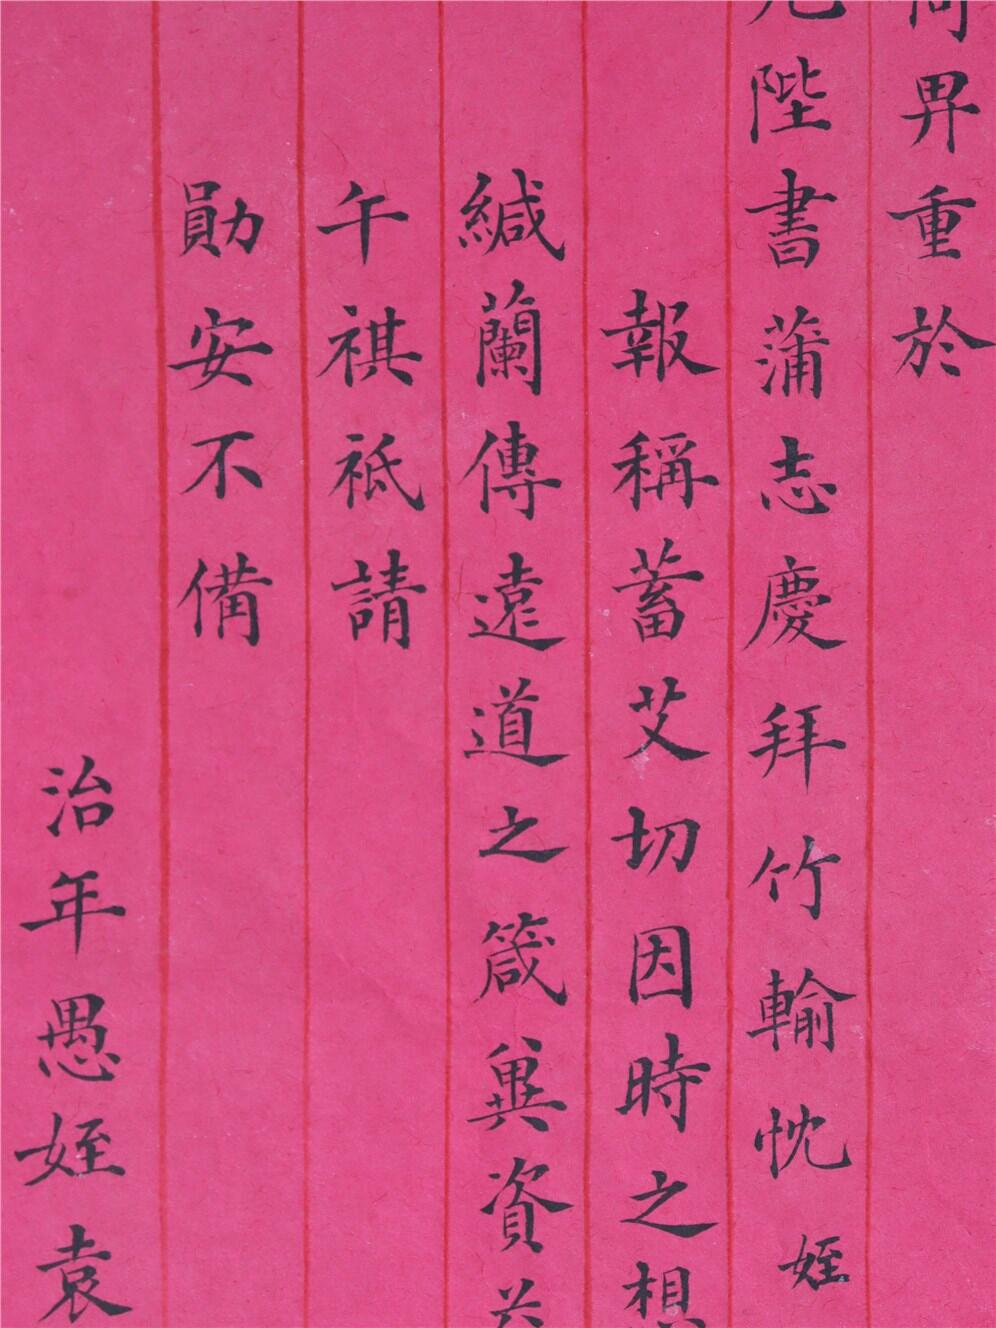 畀重於
陛書蒲志慶拜竹輸忱姪
報稱蓄艾切因時之想
緘蘭傳遠道之箴冀資
午祺祗請
勛安不備
治年愚姪袁